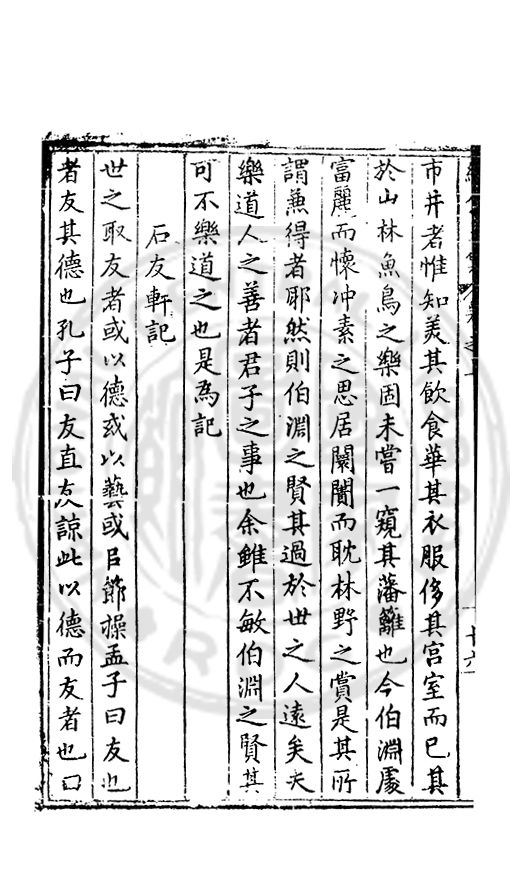 市井者惟知美其飲食華其衣服侈其宮室而已其
於山林魚鳥之樂固未嘗一窺其藩籬也今伯淵處
富麗而懷冲素之思居闤闠而耽林野之賞是其所
謂兼得者耶然則伯淵之賢其過於世之人遠矣夫
樂道人之善者君子之事也余雖不敏伯淵之賢其
可不樂道之也是爲記
石友軒記
世之取友者或以德或以藝或㠯節操孟子曰友也
者友其德也孔子曰友直友諒此以德而友者也